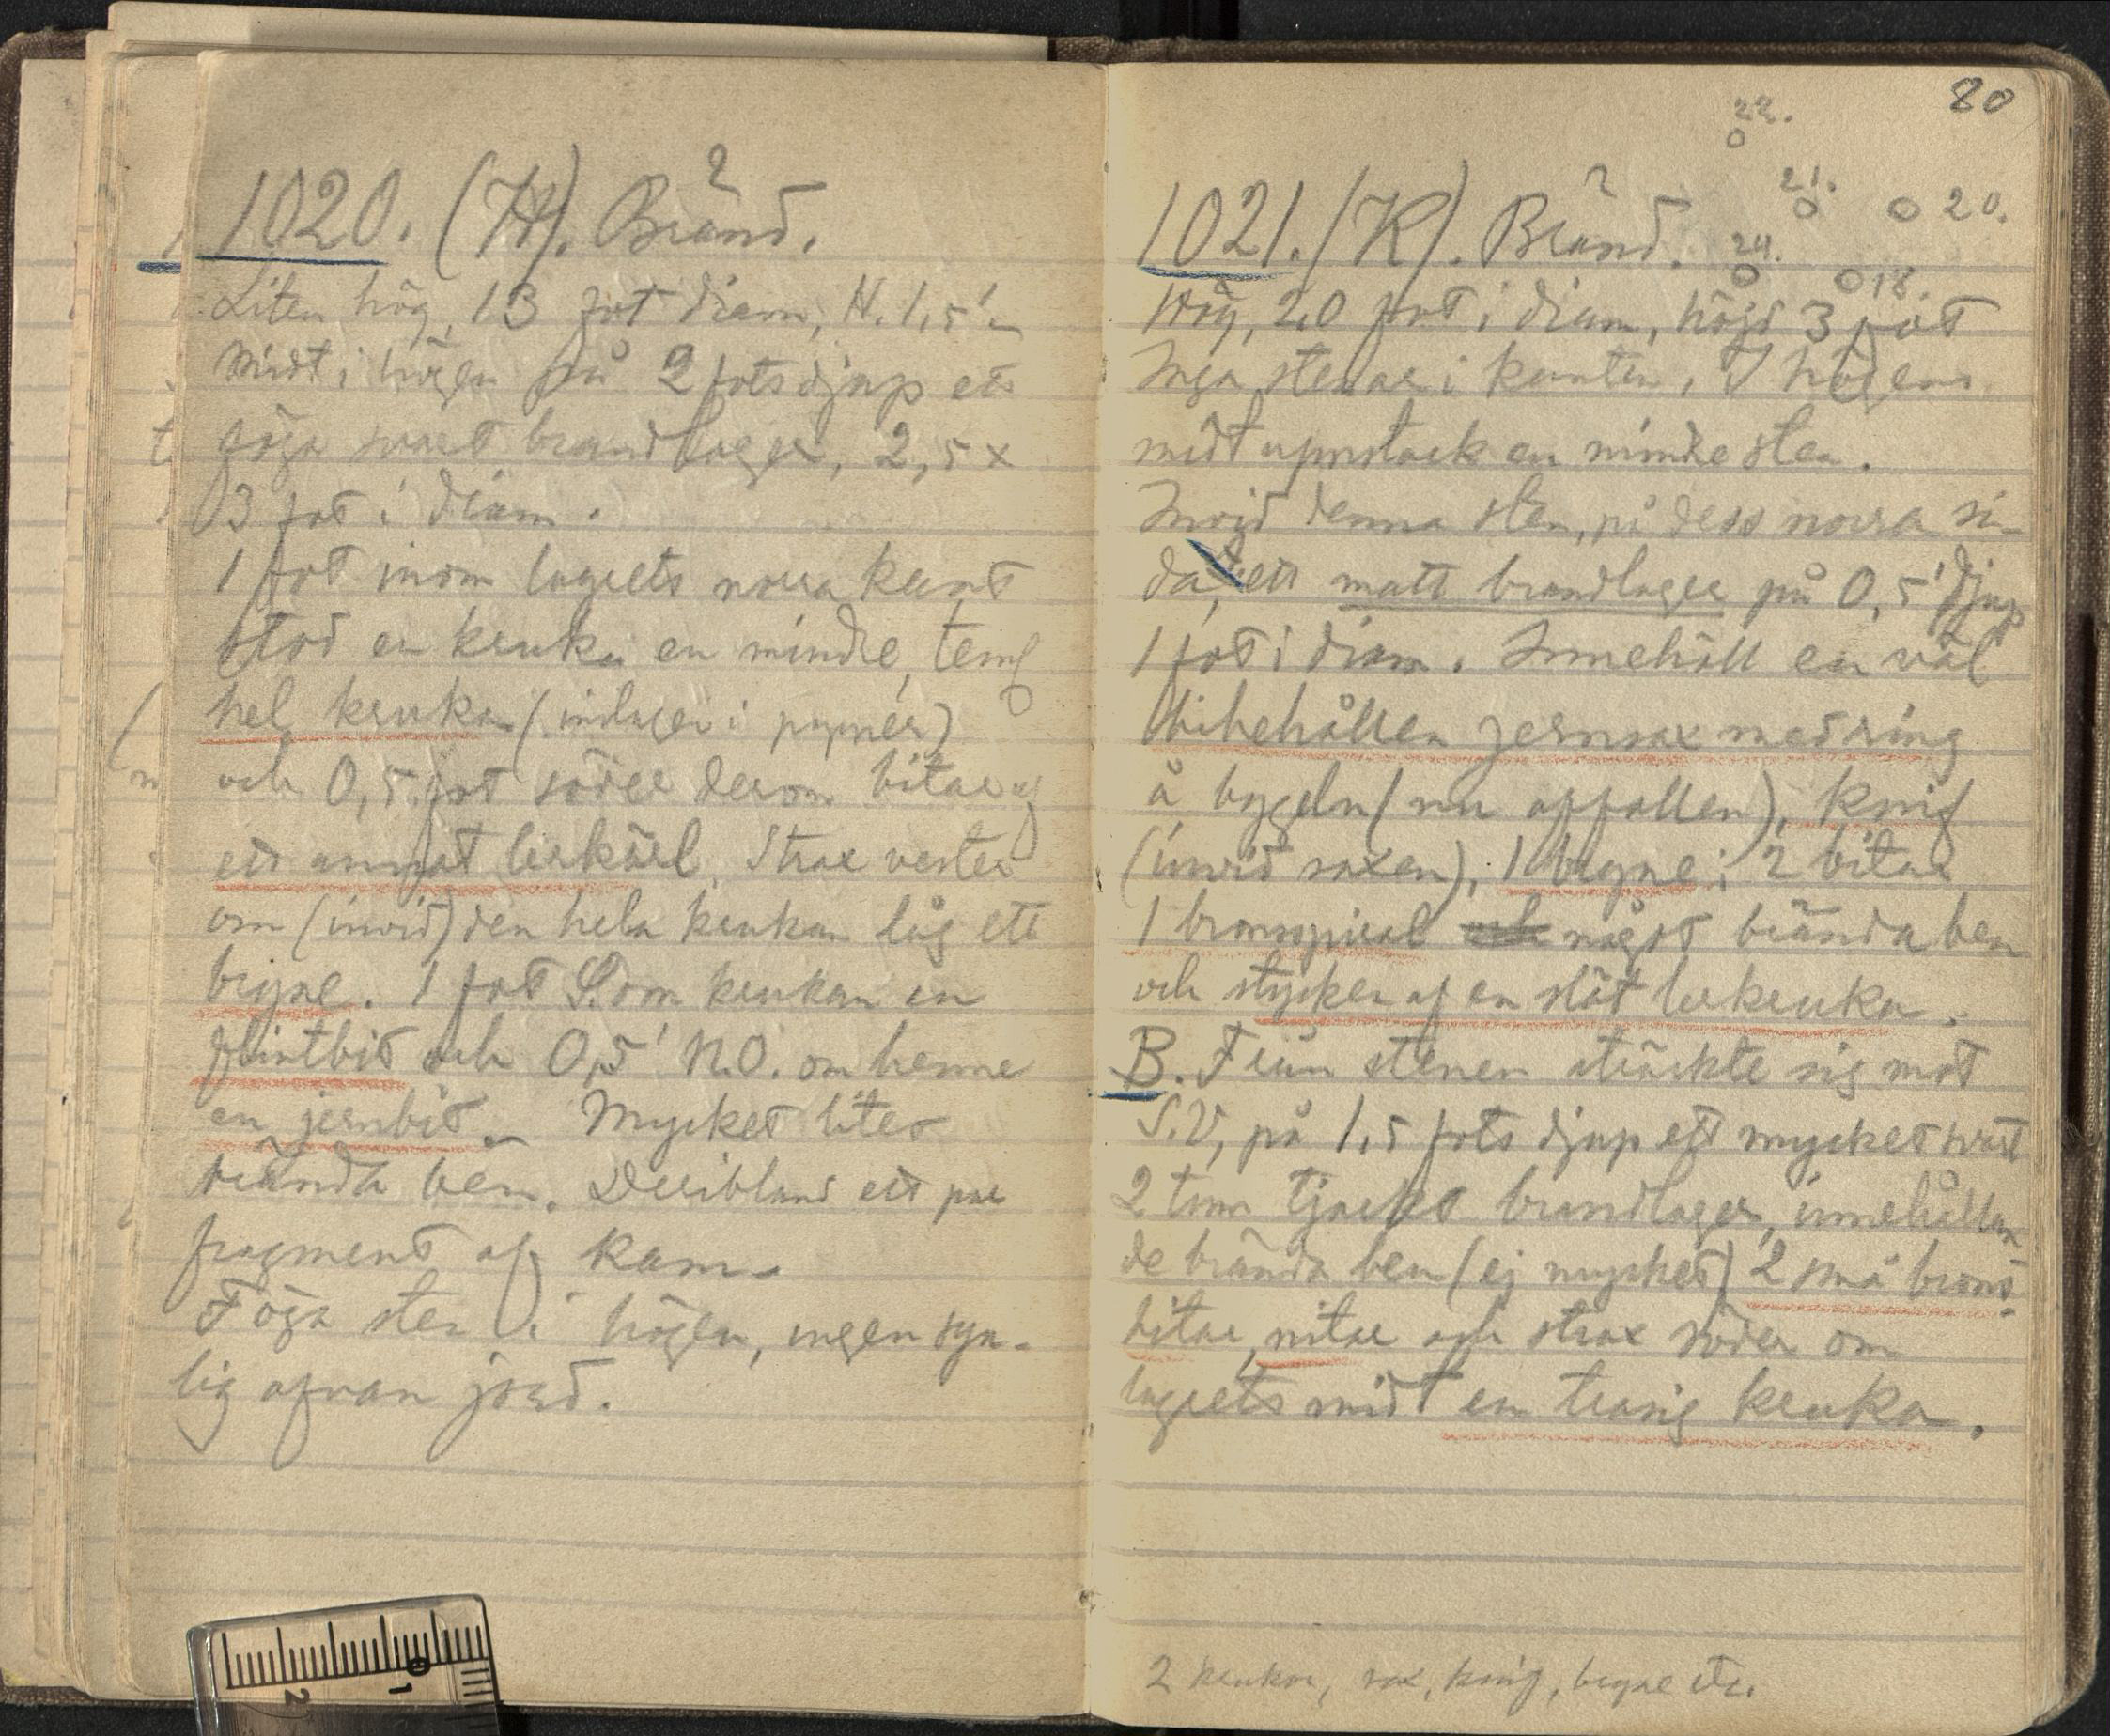 1020. (H). Bränd.
Liten hög, 13 fot diam, H. 1,5'.
Midt i högen på 2 fots djup ett
föga svart brandlager, 2,5 x
3 fot i diam.
1 fot inom lagrets norra kant
stod en kruka en mindre, teml
hel kruka (intagen i papper)
och 0,5 fot söder derom bitar af
ett annat lerkärl. Strax vester
om (invid) den hela krukan låg ett
bryne. 1 fot S. om krukan en
flintbit och 0,5' N.O. om henne
en jernbit. Mycket litet
brända ben. Deribland ett par
fragment af kam.
Föga sten i högen, ingen syn-
lig ofvan jord.
80
22.
21.
20.
24.
18.
1021. (K). Bränd.
Hög, 20 fot i diam, höjd 3 fot
Inga stenar i kanten, I högens
midt uppstack en mindre sten.
Invid denna sten, på dess norra si-
da, ett matt brandlager på 0,5' djup
1 fot i diam. Innehöll en väl
bibehållen jernsax med ring
å bygeln (nu affallen), knif
(invid saxen), 1 bryne i 2 bitar
1 bronsspiral och något brända ben
och stycken af en slät lerkruka.
B. Från stenen sträckte sig mot
S.V, på 1,5 fots djup ett mycket svart
2 tum tjockt brandlager, innehållan
de brända ben (ej mycket) 2 små brons-
bitar, nitar och strax söder om
lagrets midt en trasig kruka.
2 krukor, sax, knif, bryne etc.